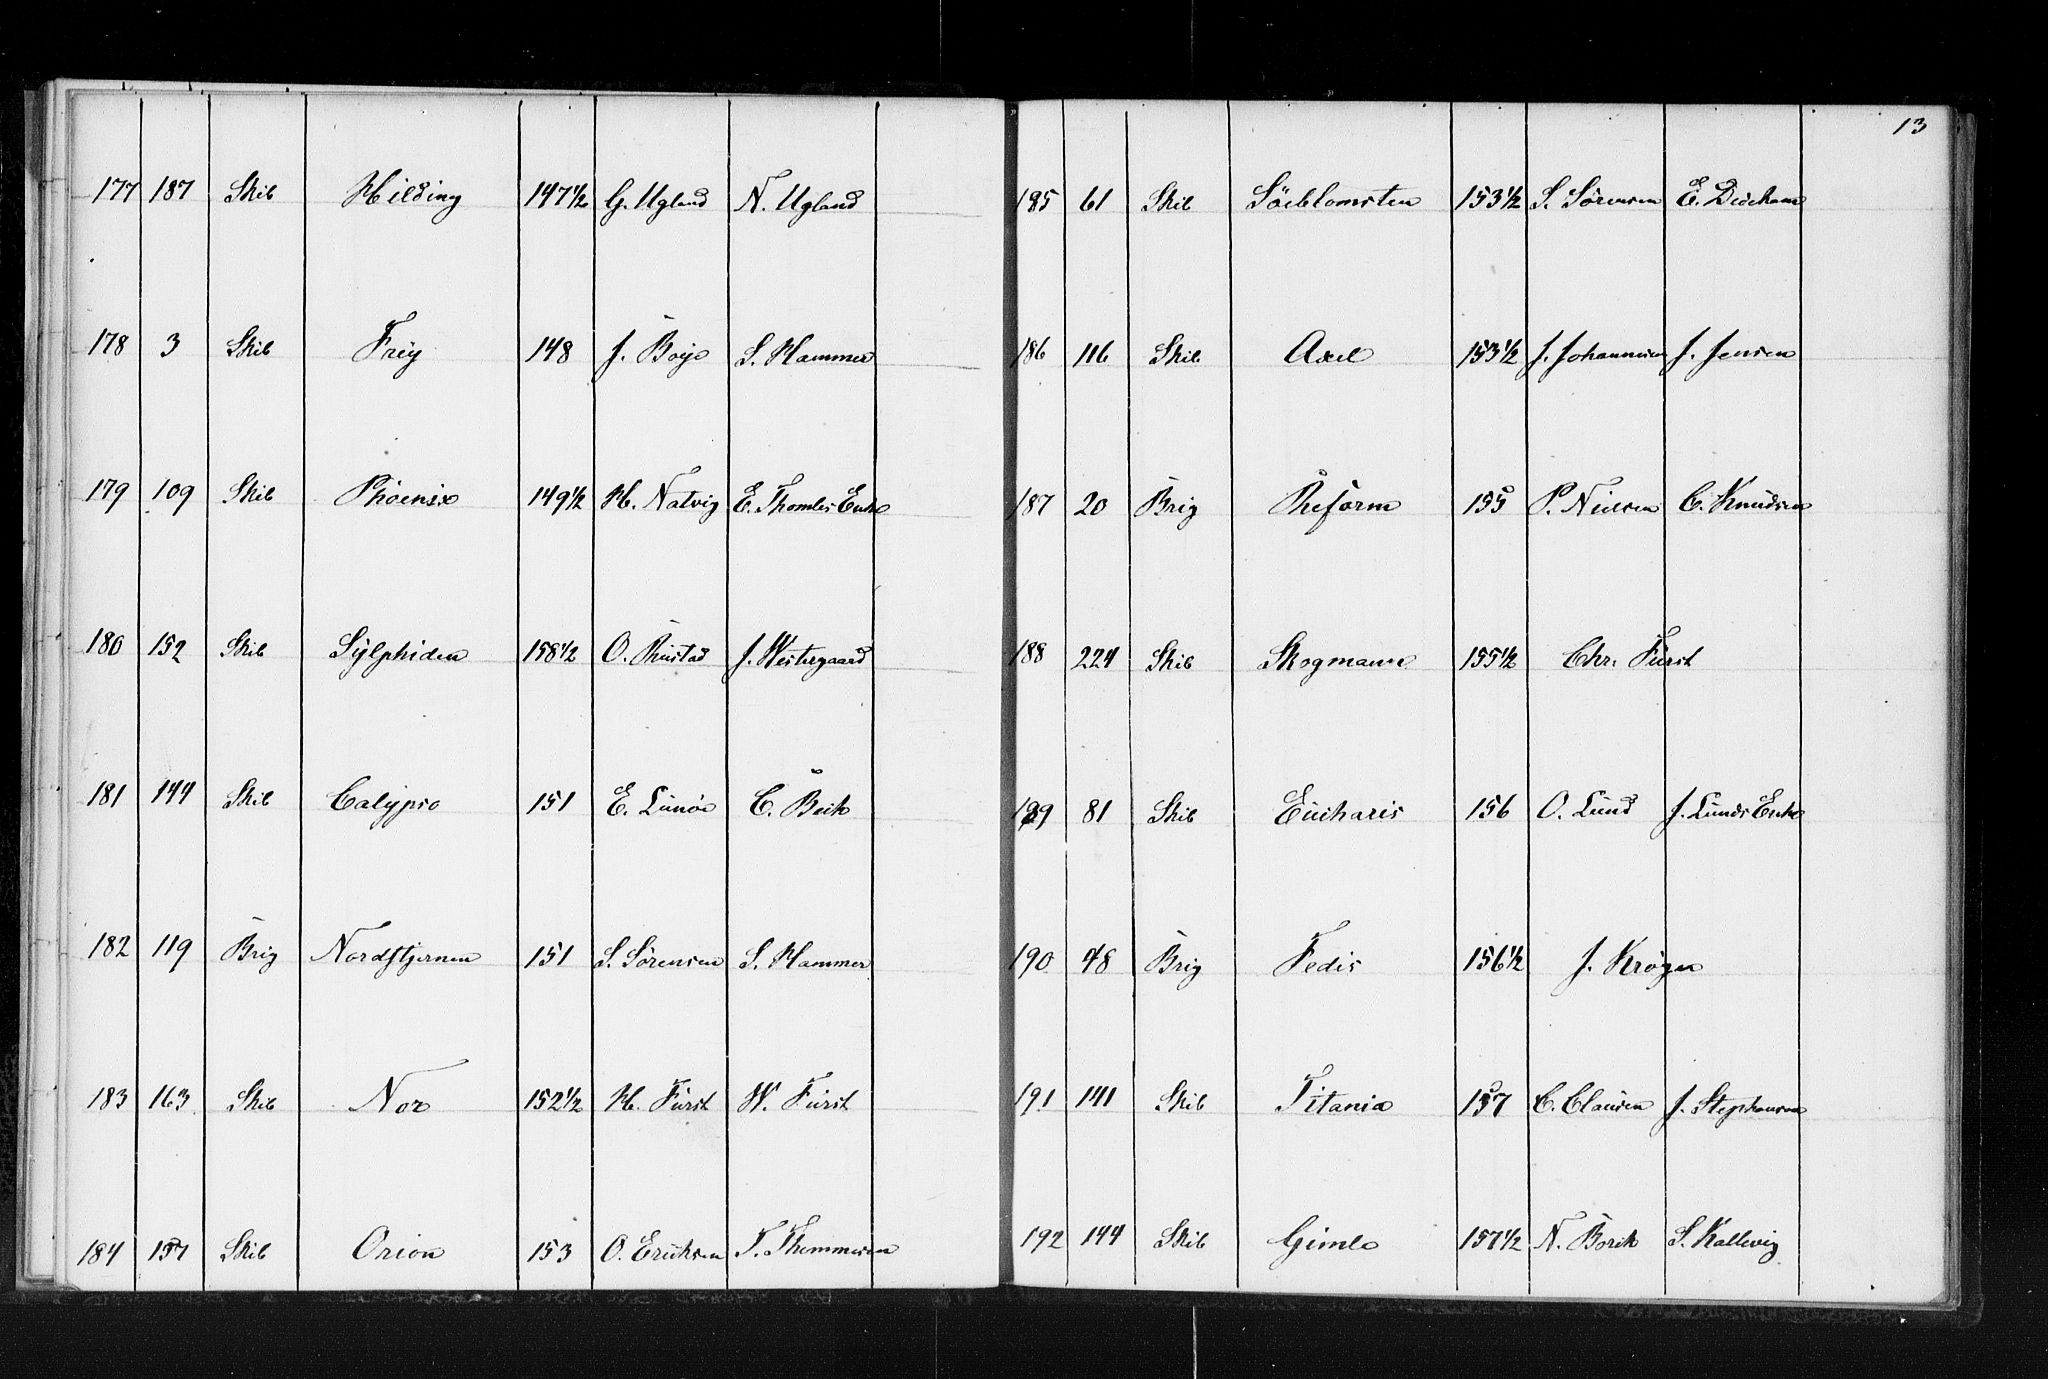 177 187 Skib Hilding 147 1/2 G. Ugland N. Ugland
178 3 Skib Freÿ 148 J. Boÿe S. Hammer
179 109 Skib Phoenix 149 1/2 H. Natvig E. Thomles Enke
180 152 Skib Sÿlphiden 158 1/2 O. Rustad J. Westergaard
181 144 Skib Calÿpso 151 E. Lunöe C. Beck
182 119 Brig Nordstjernen 151 S. Sörensen S. Hammer
183 163 Skib Nor 152 1/2 H. Fürst W. Fürst
184 157 Skib Orion 153 O. Ericksen T. Thommesen
13
185 61 Skib Söeblomsten 153 1/2 S. Sörensen E. Dedekam
186 116 Skib Axel 153 1/2 J. Johannesen J. Jensen
187 20 Brig Reform 155 P. Nielsen C. Knudsen
188 224 Skib Skogmann 155 1/2 Chr. Fürst
189 81 Skib Eucharis 156 O. Lund J. Lunds Enke
190 48 Brig Fedis 156 1/2 J. Kröger
191 141 Skib Titania 157 C. Clausen J. Stephansen
192 144 Skib Gimle 157 1/2 N. Borck S. Kallevig